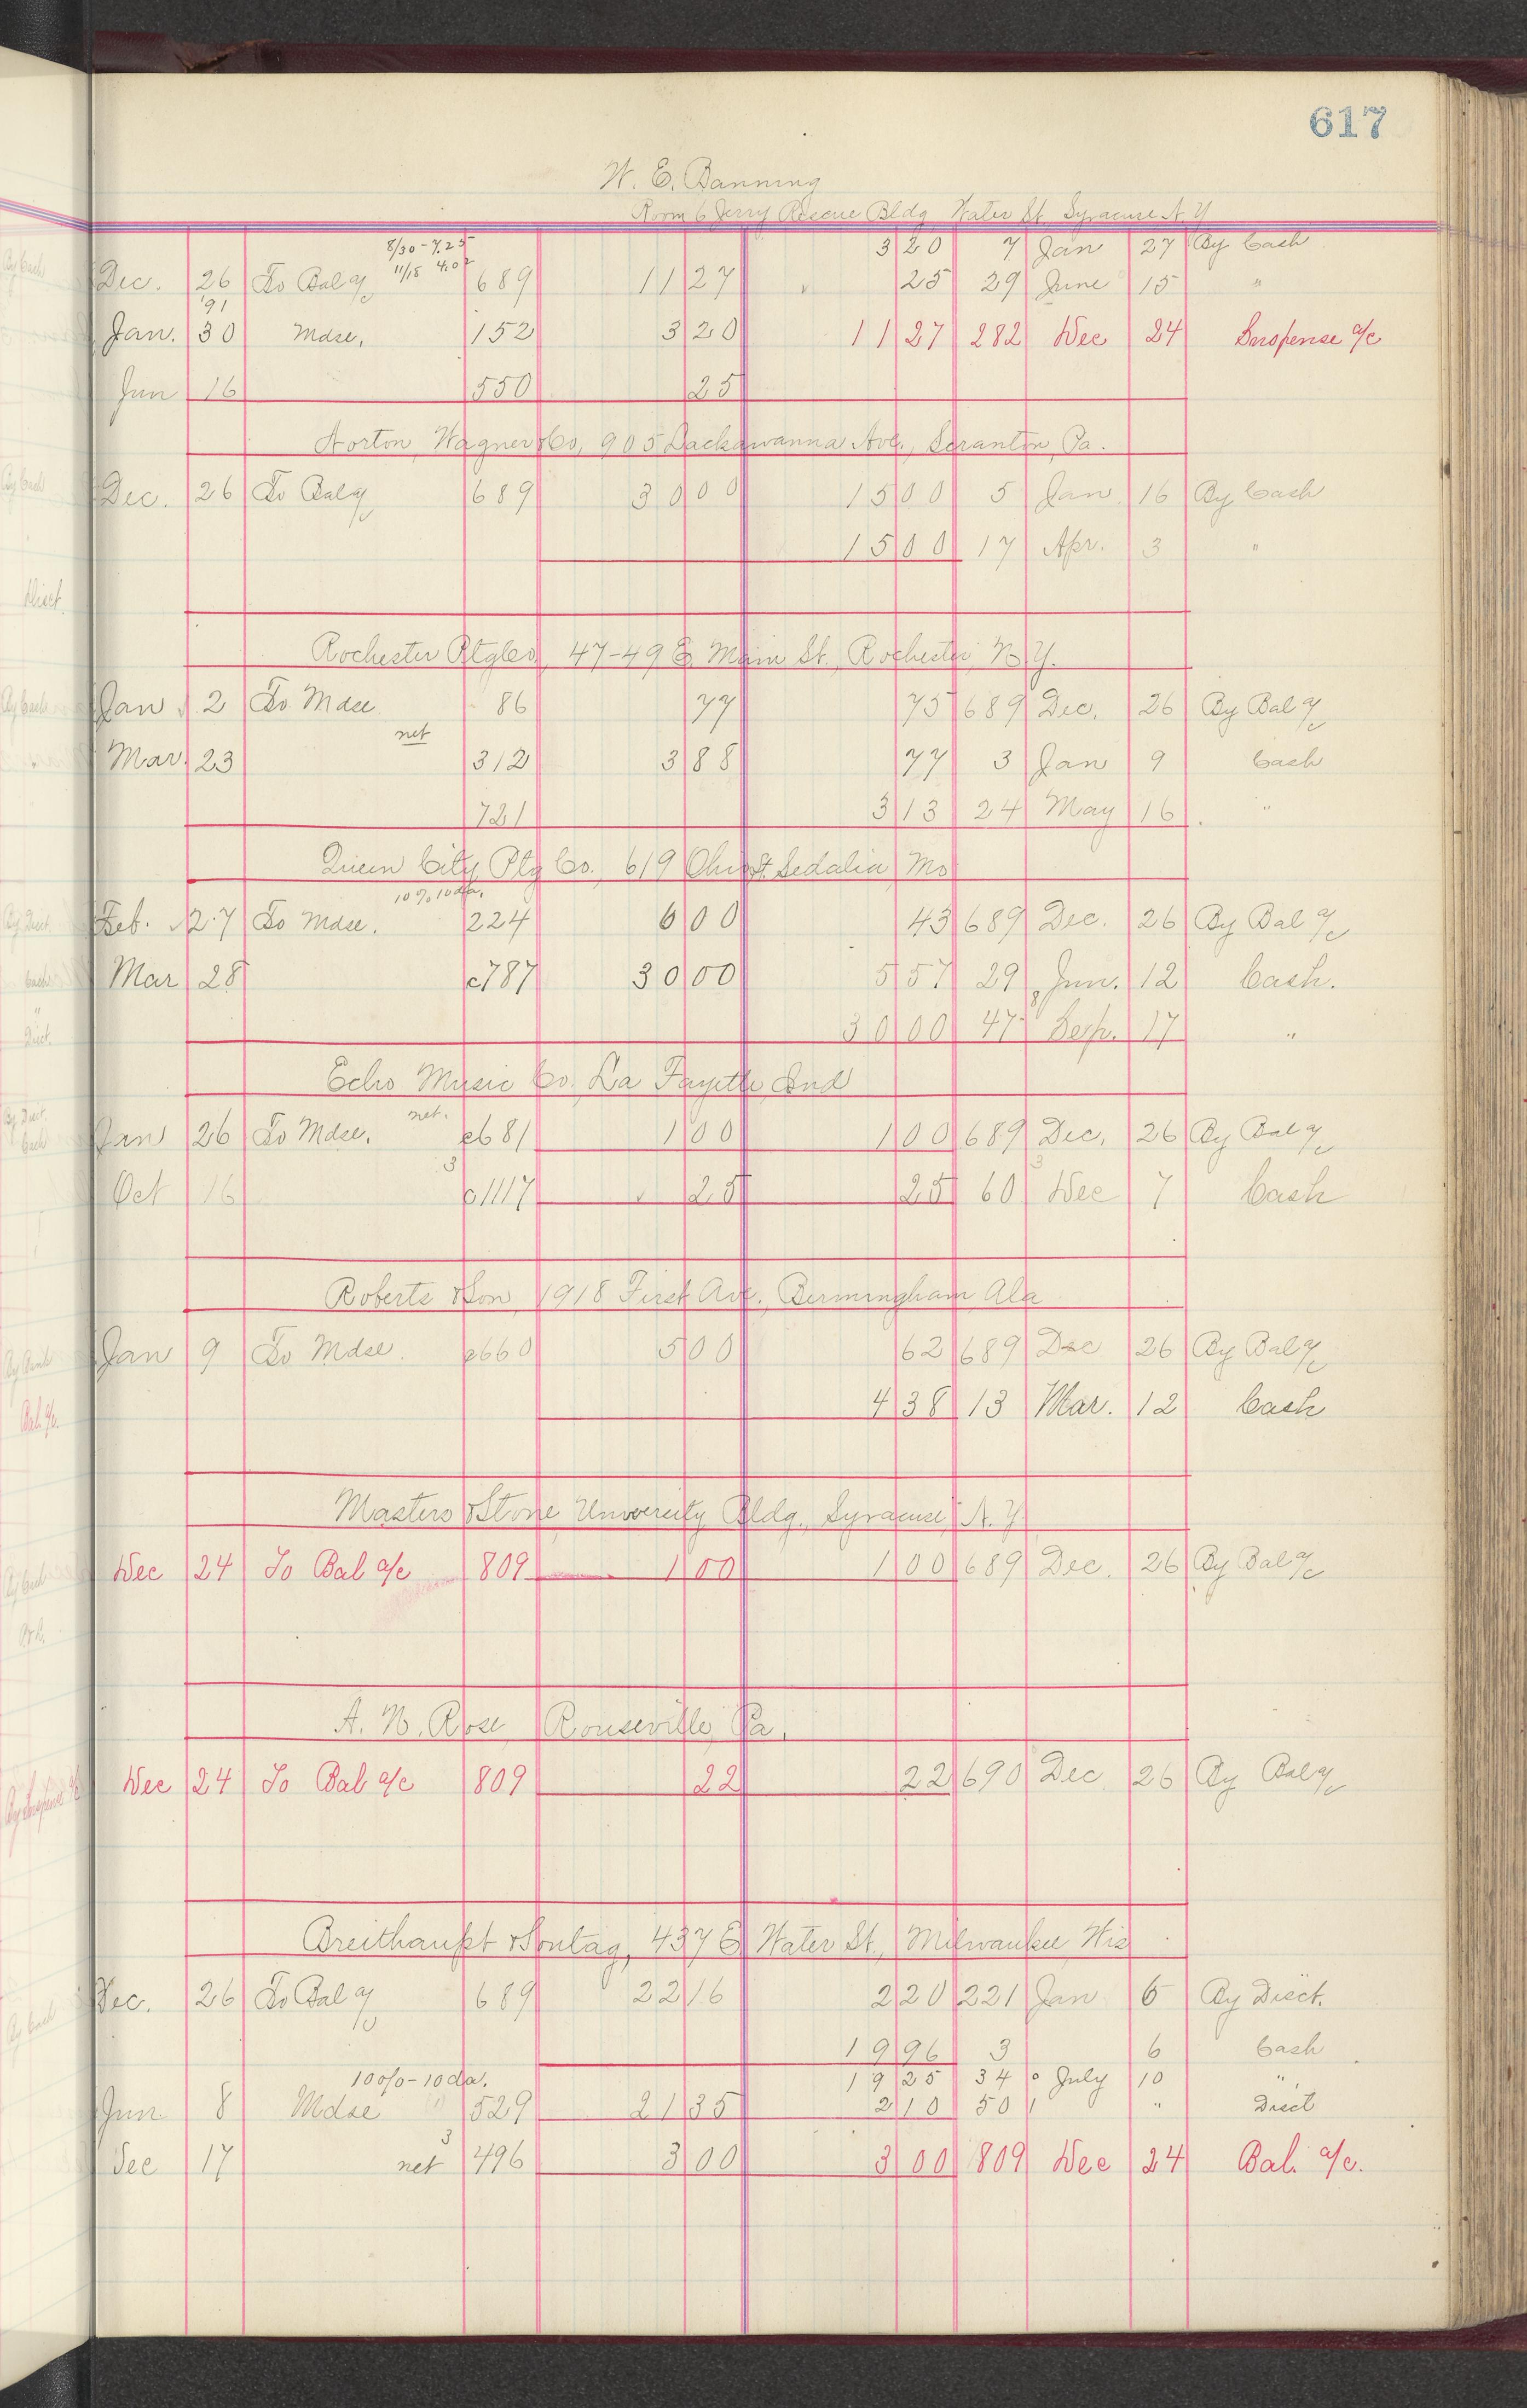 617
W. E. Banning
Room 6 Jerry Rescue Bldg Water St. Syracuse N. Y
8/30 - 7.25 320 7 Jan 27 By Cash
Dec. 26 To Bal a/c 11/18 4.02 689 11 27 25 29 June 15 "
'91
Jan. 30 Mdse. 152 3 20 11 27 282 Dec 24 Suspense a/c
Jun 16 550 25
Norton, Wagner & Co, 905 Lackawanna Ave., Scranton, Pa.
Dec. 26 To Bal a/c 689 30 00 15 00 5 Jan. 16 By Cash
15 00 17 Apr. 3 "
Rochester Ptg Co, 47-49 E Main St. Rochester, N.Y.
Jan 2 To Mdse 86 77 75 689 Dec. 26 By Bal a/c
net
Mar. 23 312 3 88 77 3 Jan 9 Cash
721 3 13 24 May 16 "
Queen City Ptg Co. 619 Ohio St. Sedalia, Mo
10% 10 da.
Feb. 27 To Mdse. 224 6 00 43 689 Dec. 26 By Bal a/c
Mar 28 c787 30 00 5 57 29 Jun. 12 Cash.
30 00 47 Sep. 17 "
Echo Music Co. La Fayette, Ind
net.
Jan 26 To Mdse. c681 1 00 1 00 689 Dec. 26 By Bal a/c
3 3
Oct 16 c1117 25 25 60 Dec 7 Cash
Roberts & Son, 1918 First Ave., Birmingham, Ala
Jan 9 To Mdse. c660 5 00 62 689 Dec 26 By Bal a/c
4 38 13 Mar. 12 Cash
Masters & Stone University Bldg., Syracuse, N. Y.
Dec 24 To Bal a/c 809 1 00 1 00 689 Dec. 26 By Bal a/c
A. N. Rose, Rouseville, Pa.
Dec 24 To Bal a/c 809 22 22 690 Dec 26 By Bal a/c
Breithaupt & Sontag, 437 E Water St., Milwaukee, Wis
Dec. 26 To Bal a/c 689 22 16 2 20 221 Jan 6 By Disct.
19 96 3 6 Cash
10% - 10 da. 19 25 34 July 10 "
Jun 8 Mdse 529 21 35 2 10 50 " Disct
3
Dec 17 net 496 3 00 3 00 809 Dec 24 Bal. a/c.